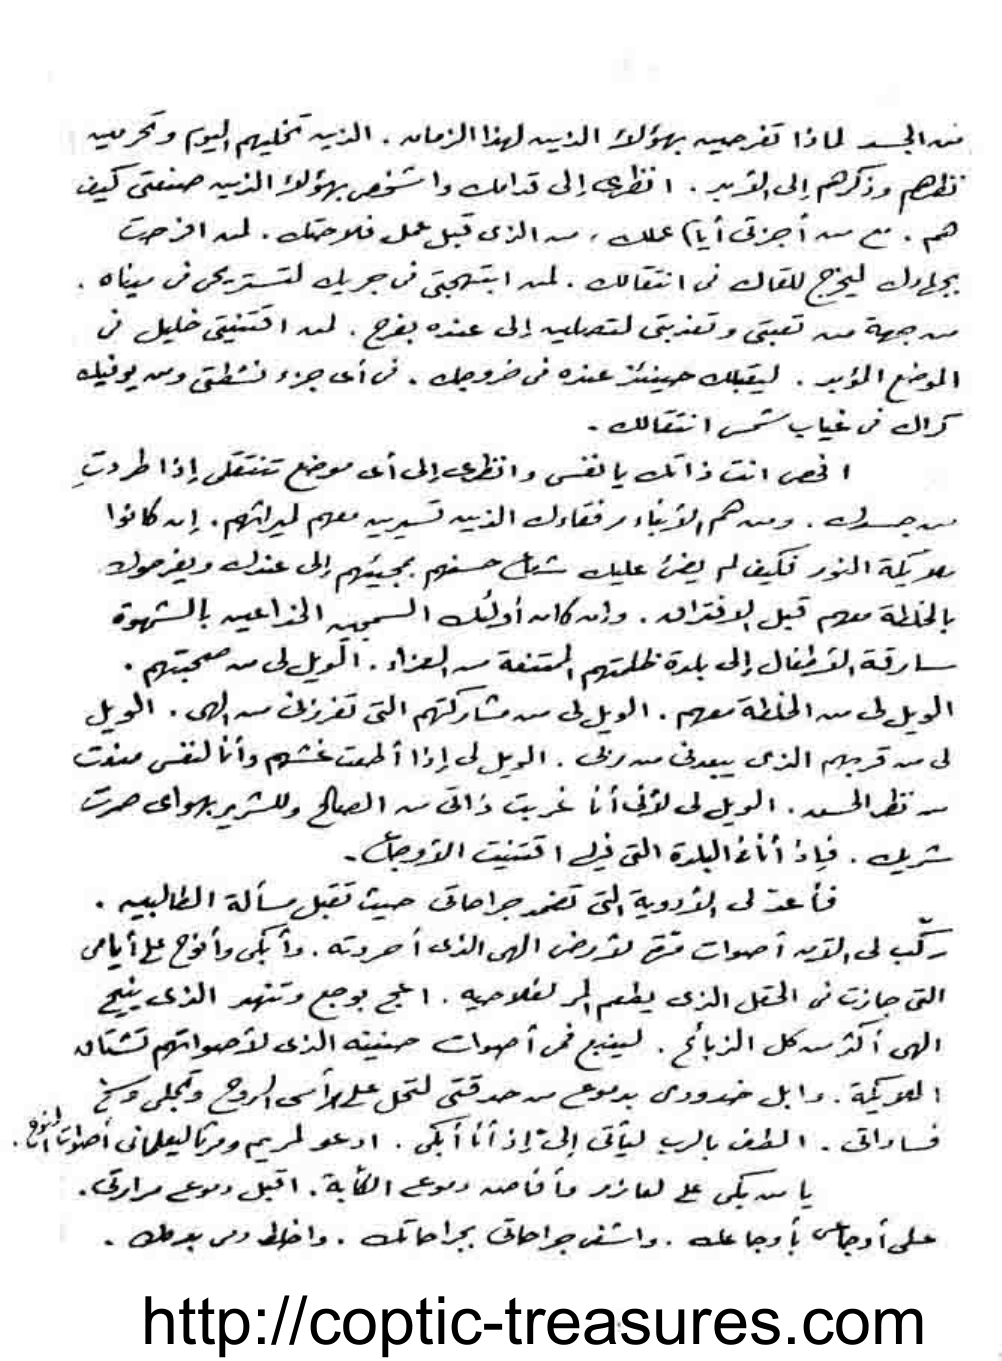 من الجسد لماذا تفرحين بهؤلاء الذين لهذا الزمان . الذين تخليهم اليوم وتحرمين
نظرهم وذكرهم إلى الأبد . انظرى إلى قدامك واشخص بهؤلاء الذين صنعتى كيف
هم . مع من أجزتى أيام عملك ، من الذى قبل عمل فلاحتك . لمن افرحت
بجهادك ليخرج للقاك فى انتقالك . لمن ابتهجتى فى جريك لتستريحى فى ميناه .
من جهة من تعبتى وتعذبتى لتصلين إلى عنده بفرح . لمن اقتنيتى خليل فى
الموضع المؤبد . ليقبلك حينئذ عنده فى خروجك . فى أى جزء نشطتى ومن يوفيك
كراك فى غياب شمس انتقالك .
افحص انت ذاتك يا نفس وانظرى إلى أى موضع تنتقلى إذا طردتِ
من جسدك . ومن هم الأبناء رفقاءك الذين تسيرين معهم لميراثهم . إن كانوا
ملائكة النور فكيف لم يضئ عليك شعاع حسنهم بمجيئهم إلى عندك ويفرحوك
بالخلطة معهم قبل الافتراق . وإن كان أولئك السمجين الخداعين بالشهوة
سارقة الأطفال إلى بلدة ظلمتهم الممتنعة من العزاء . الويل لى من صحبتهم .
الويل لى من الخلطة معهم . الويل لى من مشاركتهم التى تفرزنى من إلهى . الويل
لى من قربهم الذى يبعدنى من ربى . الويل لى إذا أطعت غشهم وأنا لنفسى منعت
من نظر الحسن . الويل لى لأنى أنا غربت ذاتى من الصالح وللشرير بهواى صرت
شريك . فإذ أنا فى البلدة التى فيها اقتنيت الأوجاع .
فأعد لى الأدوية التى تضمد جراحاتى حيث تقبل مسألة الطالبين .
ركّب لى الآن أصوات لأرض الهى الذى أحردته . وأبكى وأنوح على أيامى
التى جازت فى الحقل الذى يطعم المر لفلاحيه . اعج بوجع وتنهد الذى ينيح
الهى أكثر من كل الذبائح . لينبع فمى أصوات حنينه الذى لأصواتهم تشتاق
الملائكة . وابل خدودى بدموع من حدقتى لتحل على رأسى الروح وتجلى وسخ
فساداتى . الطف بالرب ليأتى إلىّ إذ أنا أبكى . ادعو لمريم ومرثا ليعلمانى أصوات النوح .
يا من بكى على لعازر وأفاض دموع الكآبة . اقبل دموع مرارتى .
على أوجاعى بأوجاعك . واشف جراحاتى بجراحاتك . واخلط دمى بدمك .
http://coptic-treasures.com